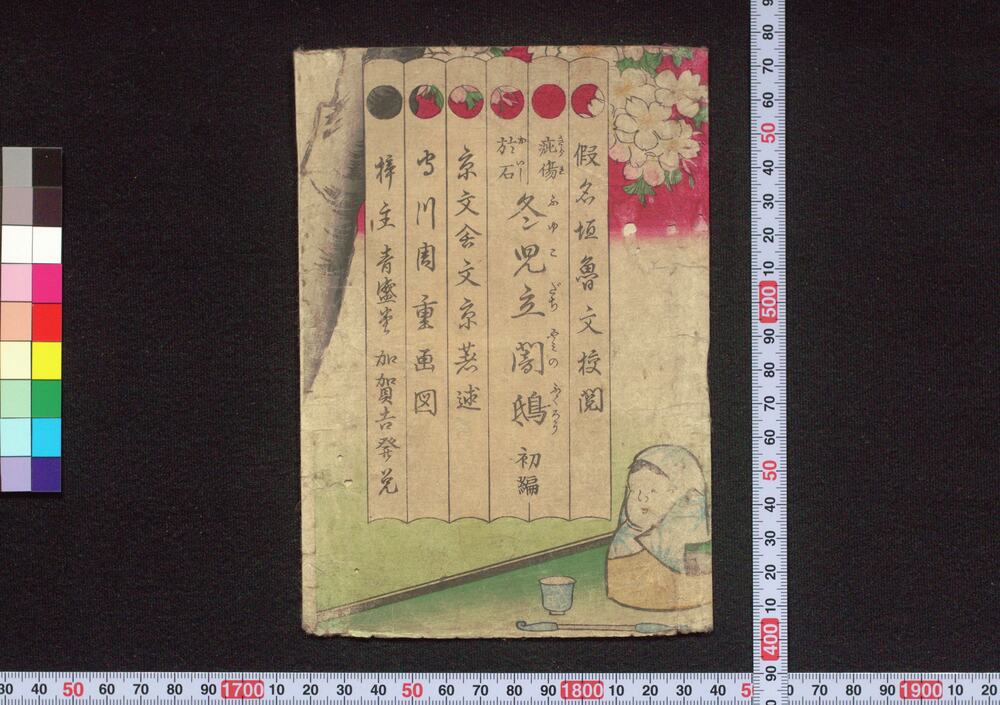 假名垣魯文校閲
疵傷
於石
おいし
冬児立闇鴟 初編
ふゆこだちやみのふくろう
京文舎文京著述
守川周重画図
梓主 青盛堂 加賀吉発兌
80 70 60 50 40 30 20 10 500 90 80 70 60 50 40 30 20 10 400 90
30 40 50 60 70 80 90 1700 10 20 30 40 50 60 70 80 90 1800 10 20 30 40 5
70 80 90 1900 10 20